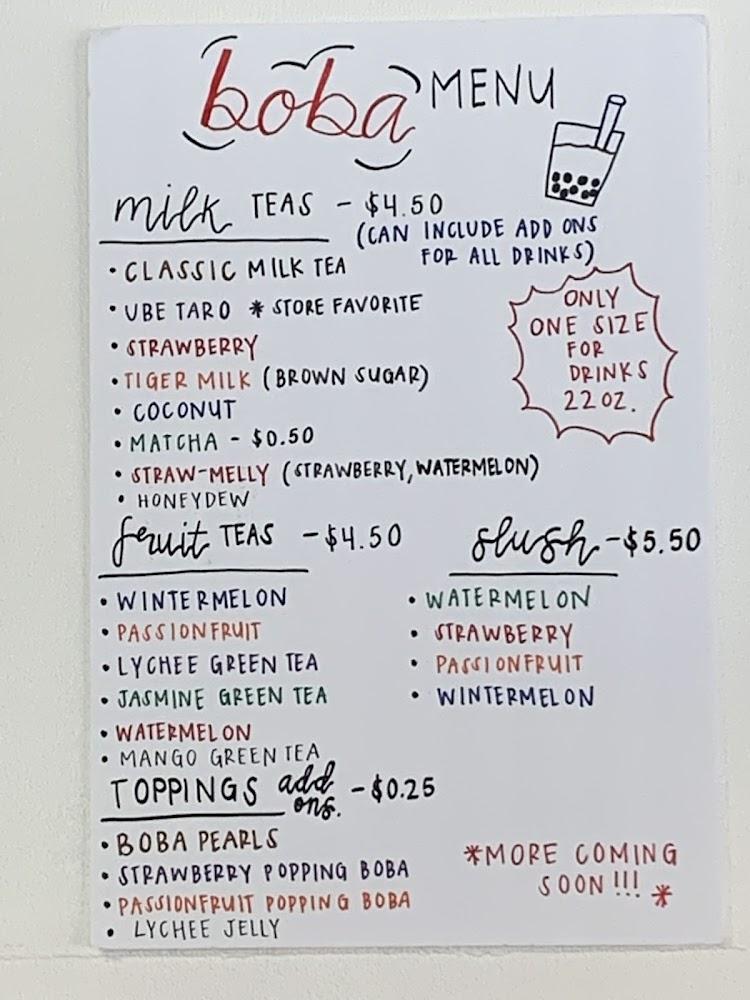 boba MENU
milk TEAS - $4.50
(CAN INCLUDE ADD ONS
FOR ALL DRINKS)
• CLASSIC MILK TEA
• UBE TARO * STORE FAVORITE
• STRAWBERRY
• TIGER MILK (BROWN SUGAR)
• COCONUT
• MATCHA - $0.50
• STRAW-MELLY (STRAWBERRY, WATERMELON)
• HONEYDEW
ONLY
ONE SIZE
FOR
DRINKS
22 OZ.
fruit TEAS - $4.50
• WINTERMELON
• PASSIONFRUIT
• LYCHEE GREEN TEA
• JASMINE GREEN TEA
• WATERMELON
• MANGO GREEN TEA
slush - $5.50
• WATERMELON
• STRAWBERRY
• PASSIONFRUIT
• WINTERMELON
TOPPINGS add ons. - $0.25
• BOBA PEARLS
• STRAWBERRY POPPING BOBA
• PASSIONFRUIT POPPING BOBA
• LYCHEE JELLY
*MORE COMING
SOON!!! *